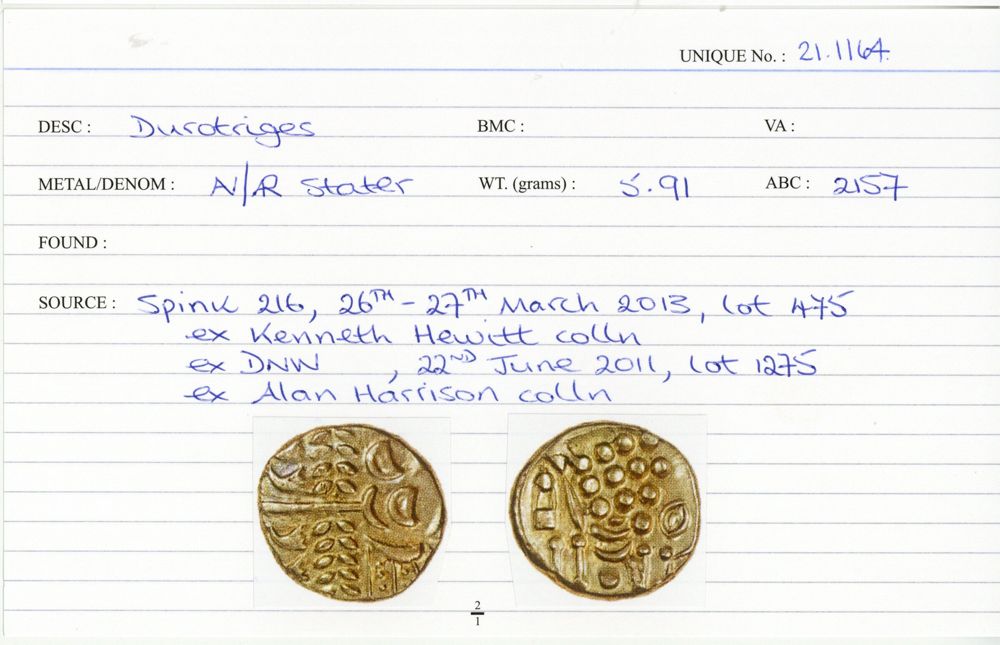 UNIQUE No. : 21.1164.
DESC : Durotriges BMC : VA :
METAL/DENOM : N/R Stater WT. (grams) : 5.91 ABC : 2157
FOUND :
SOURCE : Spink 216, 26TH - 27TH March 2013, lot 475
ex Kenneth Hewitt colln
ex DNW , 22ND June 2011, lot 1275
ex Alan Harrison colln
2
1